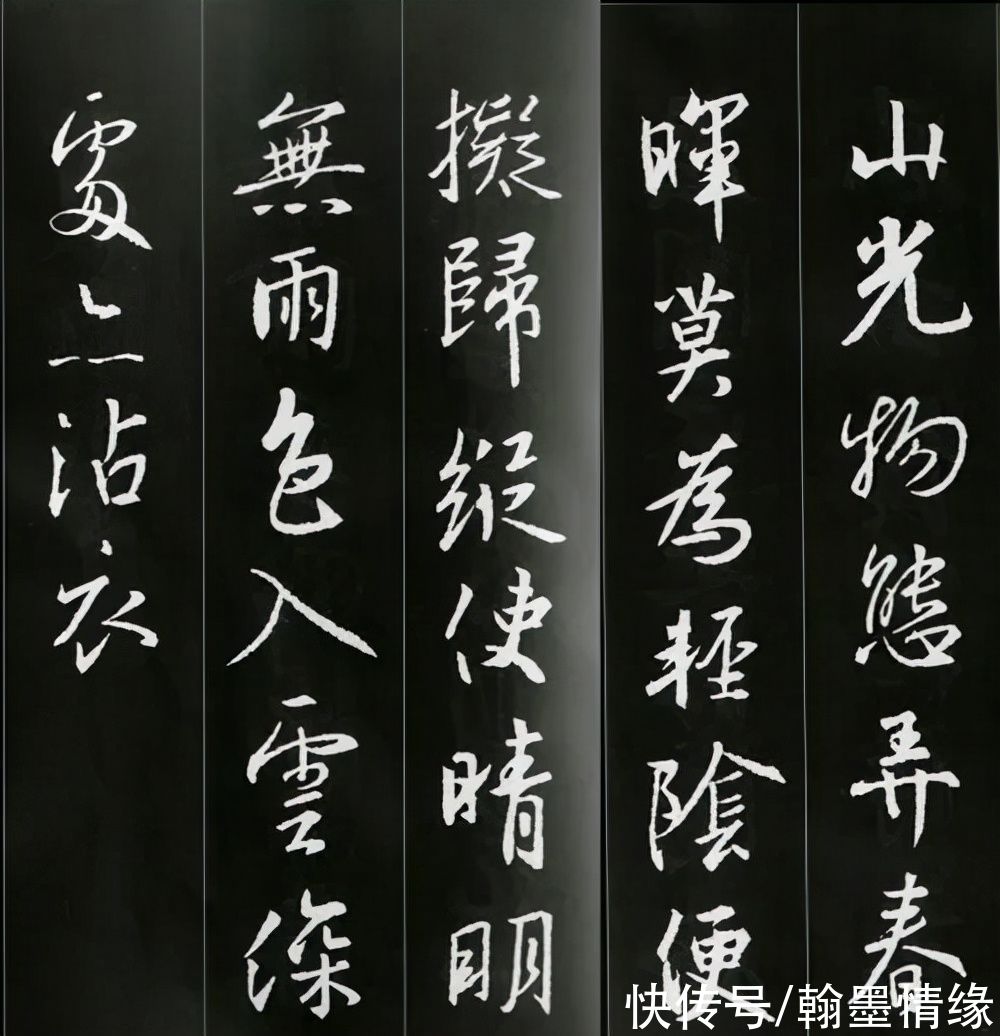 山光物態弄春
暉莫為輕陰便
擬歸縱使晴明
無雨色入雲深
處亦沾衣
快传号/翰墨情缘